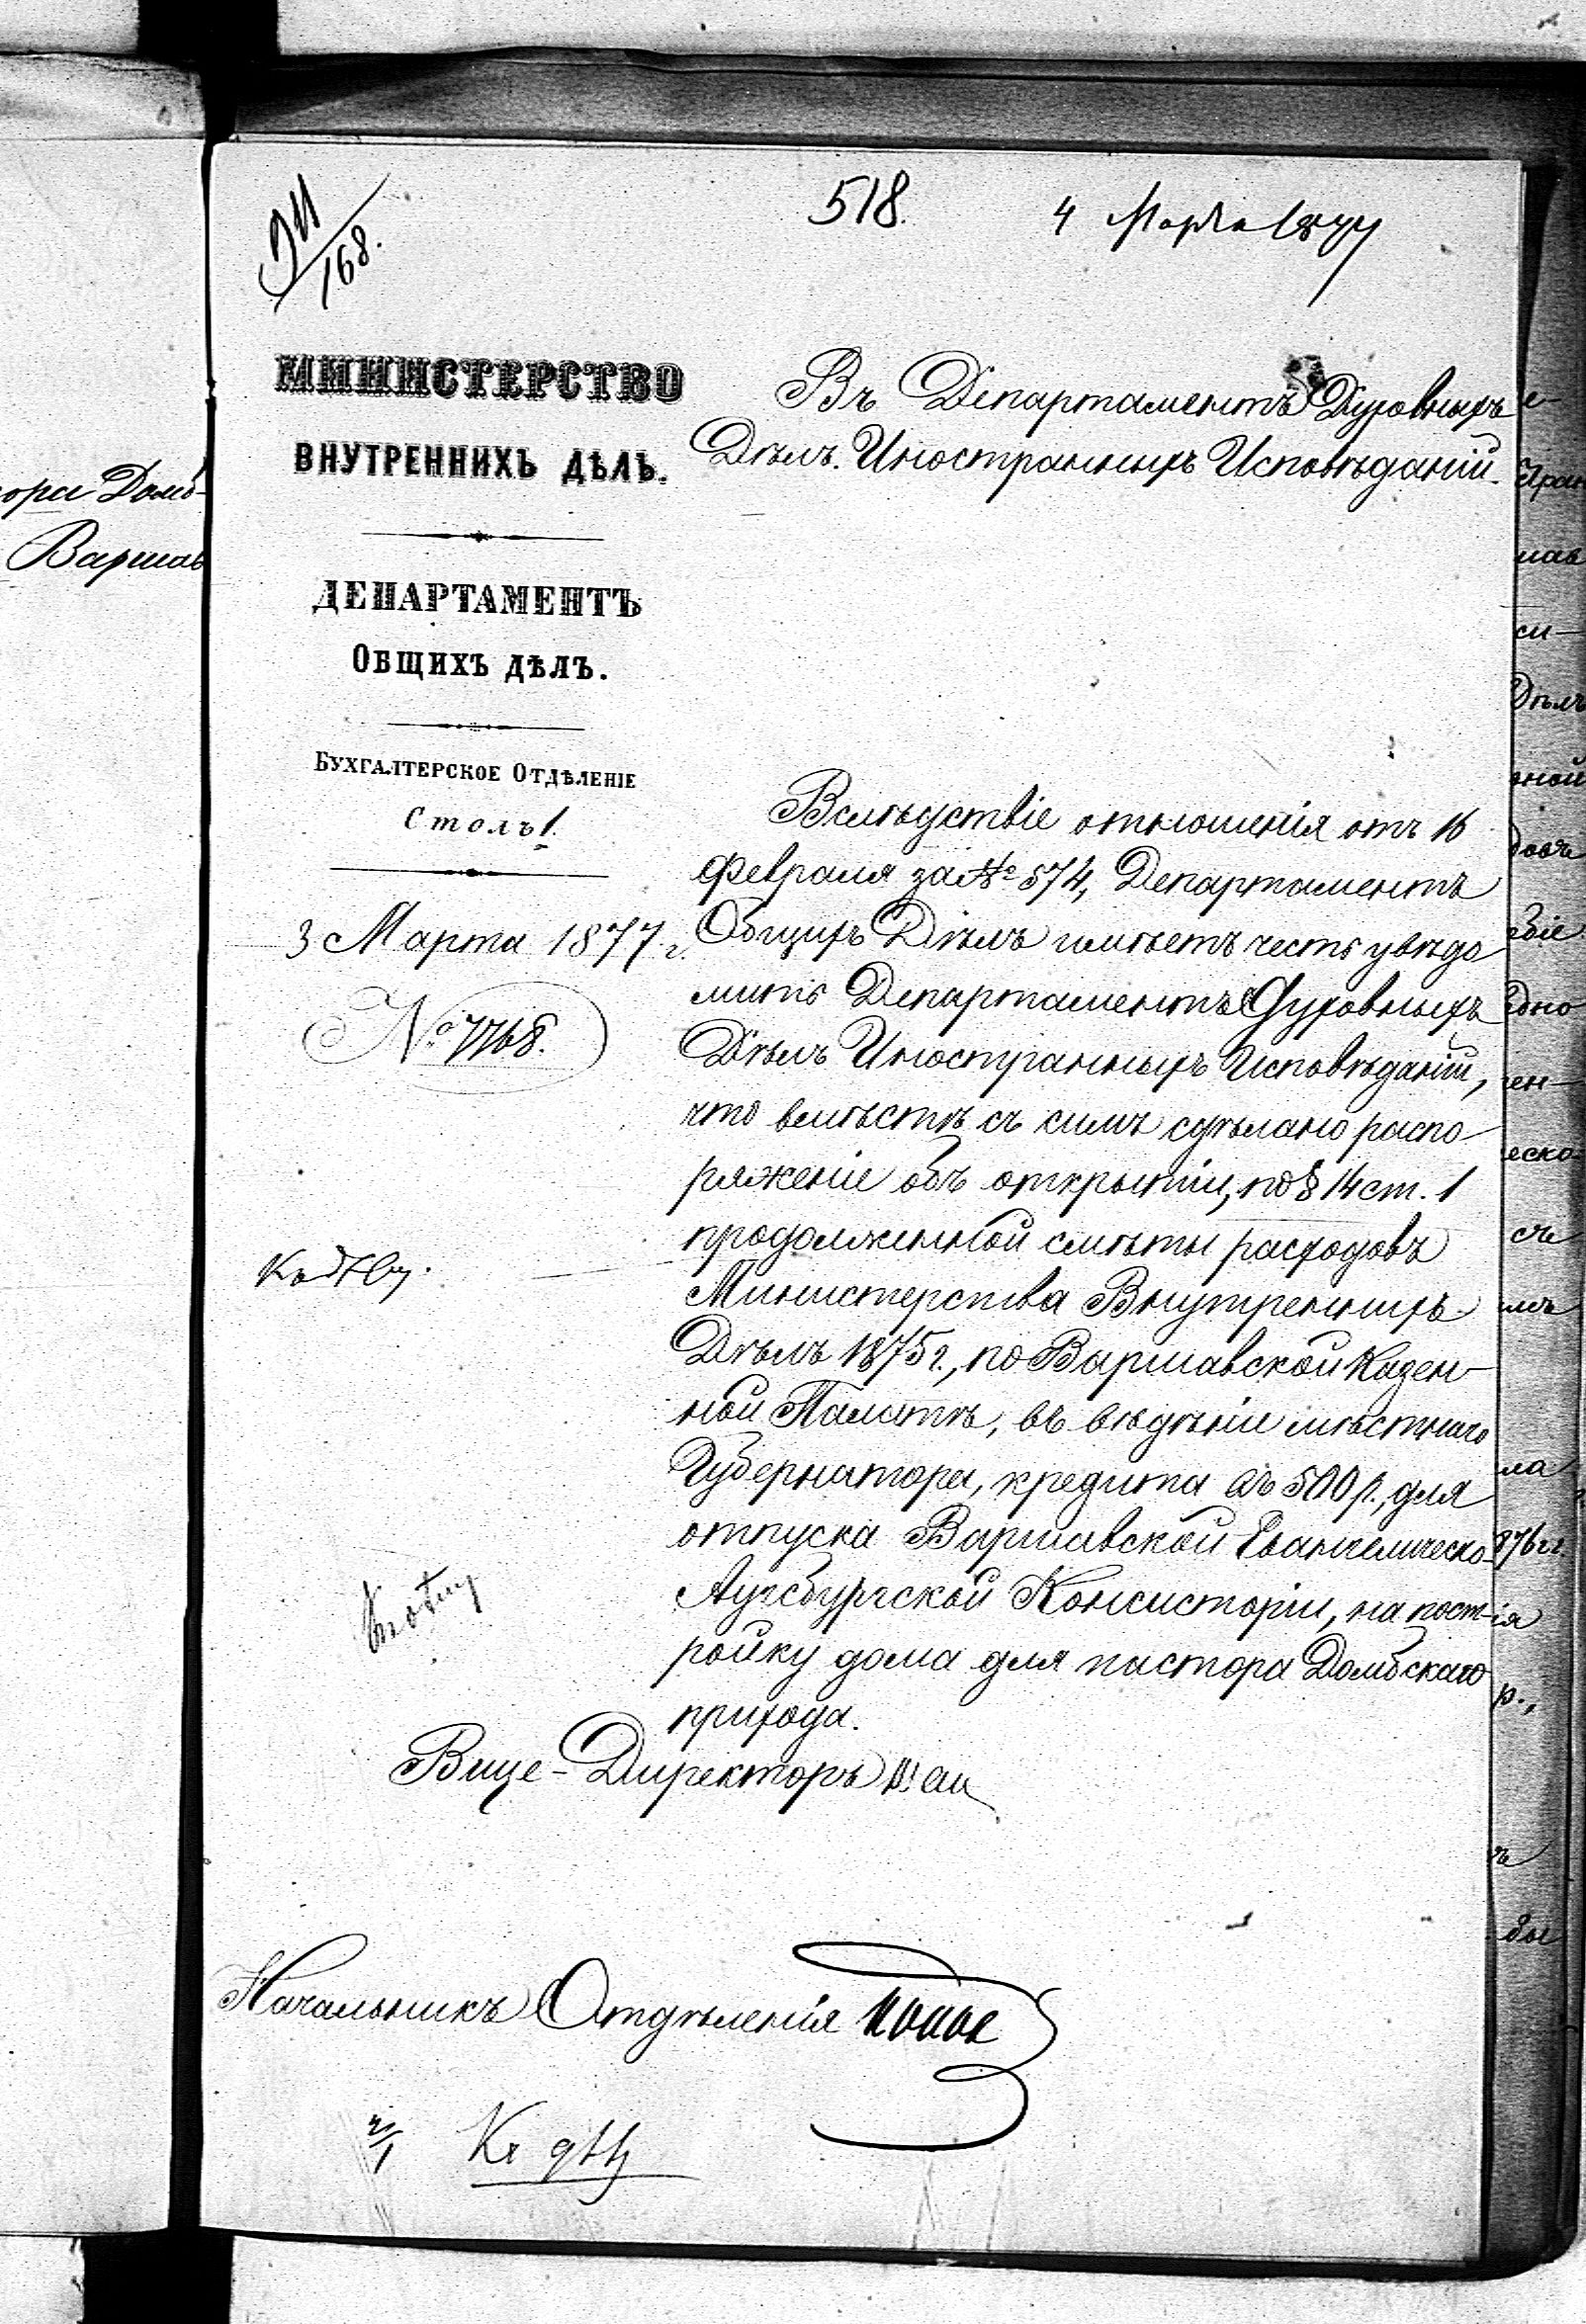 518.
4 Марта 1877
168.
МИНИСТЕРСТВО
ВНУТРЕННИХЪ ДѢЛЪ.
ДЕПАРТАМЕНТЪ
ОБЩИХЪ ДѢЛЪ.
БУХГАЛТЕРСКОЕ ОТДѢЛЕНІЕ
Столъ 1.
3 Марта 1877 г.
№ 7768.
Въ Департаментъ Духовныхъ
Дѣлъ Иностранныхъ Исповѣданій.
Вслѣдствіе отношенія отъ 16
Февраля за № 574, Департаментъ
Общихъ Дѣлъ имѣетъ честь увѣдо
мить Департаментъ Духовныхъ
Дѣлъ Иностранныхъ Исповѣданій,
что вмѣстѣ съ симъ сдѣлано распо
ряженіе объ открытіи, по § 14 ст. 1
продолженной смѣты расходовъ
Министерства Внутреннихъ
Дѣлъ 1875 г., по Варшавской Казен-
ной Палатѣ, въ вѣдѣніи мѣстнаго
Губернатора, кредита въ 500 р., для
отпуска Варшавской Евангелическо-
Аугсбургской Консисторіи, на пост-
ройку дома для пастора Домбскаго
прихода.
Вице-Директоръ
Начальникъ Отдѣленія
Къ дѣлу